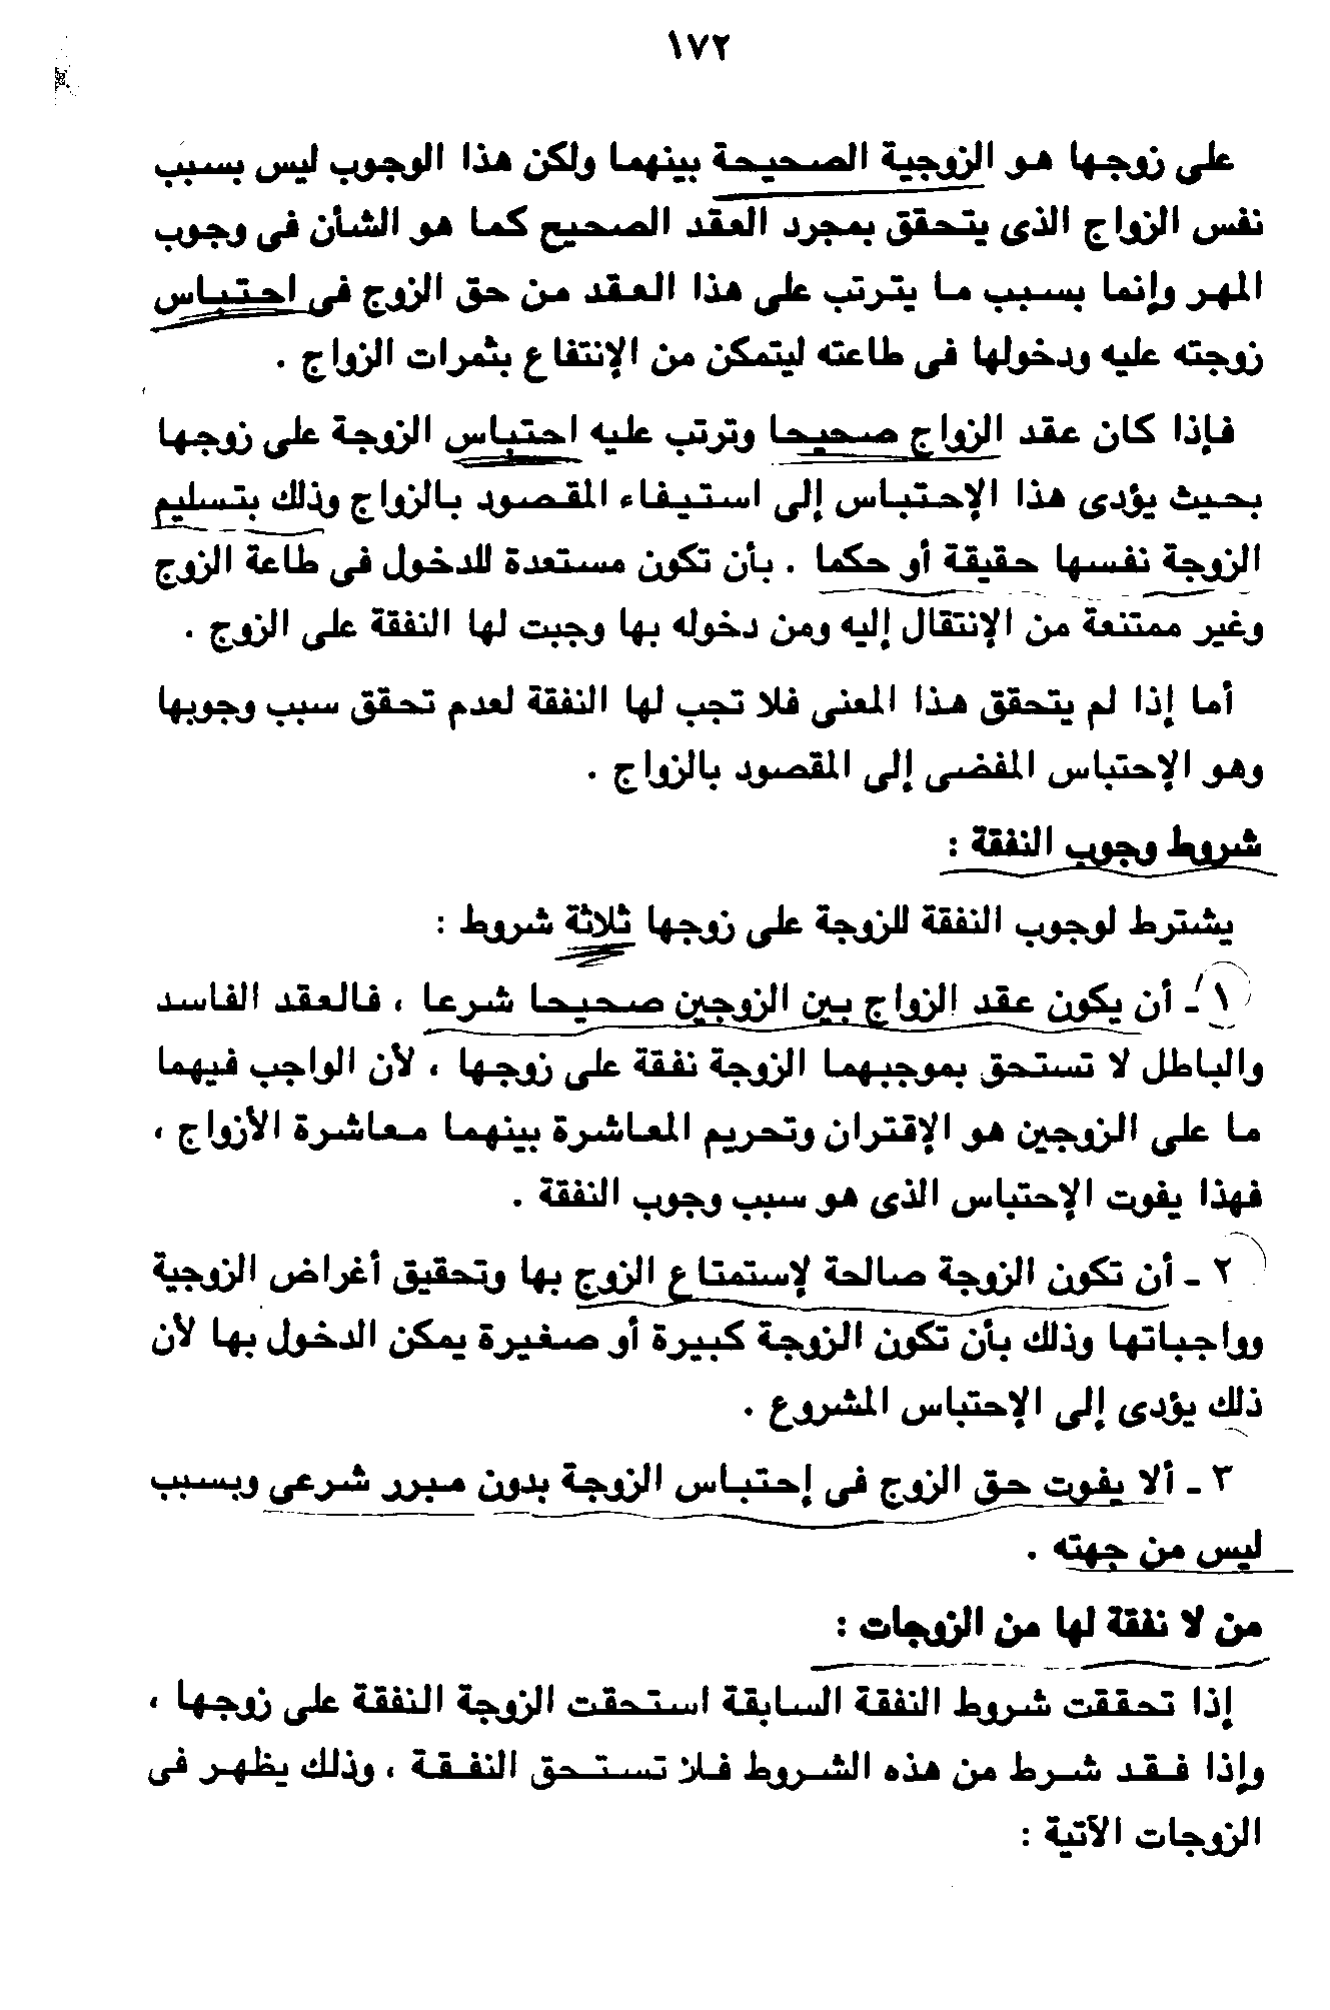 ١٧٢
على زوجها هو الزوجية الصحيحة بينهما ولكن هذا الوجوب ليس بسبب
نفس الزواج الذى يتحقق بمجرد العقد الصحيح كما هو الشأن فى وجوب
المهر وإنما بسبب ما يترتب على هذا العقد من حق الزوج فى احتباس
زوجته عليه ودخولها فى طاعته ليتمكن من الإنتفاع بثمرات الزواج .
فإذا كان عقد الزواج صحيحا وترتب عليه احتباس الزوجة على زوجها
بحيث يؤدى هذا الإحتباس إلى استيفاء المقصود بالزواج وذلك بتسليم
الزوجة نفسها حقيقة أو حكما . بأن تكون مستعدة للدخول فى طاعة الزوج
وغير ممتنعة من الإنتقال إليه ومن دخوله بها وجبت لها النفقة على الزوج .
أما إذا لم يتحقق هذا المعنى فلا تجب لها النفقة لعدم تحقق سبب وجوبها
وهو الإحتباس المفضى إلى المقصود بالزواج .
شروط وجوب النفقة :
يشترط لوجوب النفقة للزوجة على زوجها ثلاثة شروط :
١ ـ أن يكون عقد الزواج بين الزوجين صحيحا شرعا ، فالعقد الفاسد
والباطل لا تستحق بموجبهما الزوجة نفقة على زوجها ، لأن الواجب فيهما
ما على الزوجين هو الإقتران وتحريم المعاشرة بينهما معاشرة الأزواج ،
فهذا يفوت الإحتباس الذى هو سبب وجوب النفقة .
٢ ـ أن تكون الزوجة صالحة لإستمتاع الزوج بها وتحقيق أغراض الزوجية
وواجباتها وذلك بأن تكون الزوجة كبيرة أو صغيرة يمكن الدخول بها لأن
ذلك يؤدى إلى الإحتباس المشروع .
٣ ـ ألا يفوت حق الزوج فى إحتباس الزوجة بدون مبرر شرعى وبسبب
ليس من جهته .
من لا نفقة لها من الزوجات :
إذا تحققت شروط النفقة السابقة استحقت الزوجة النفقة على زوجها ،
وإذا فقد شرط من هذه الشروط فلا تستحق النفقة ، وذلك يظهر فى
الزوجات الآتية :